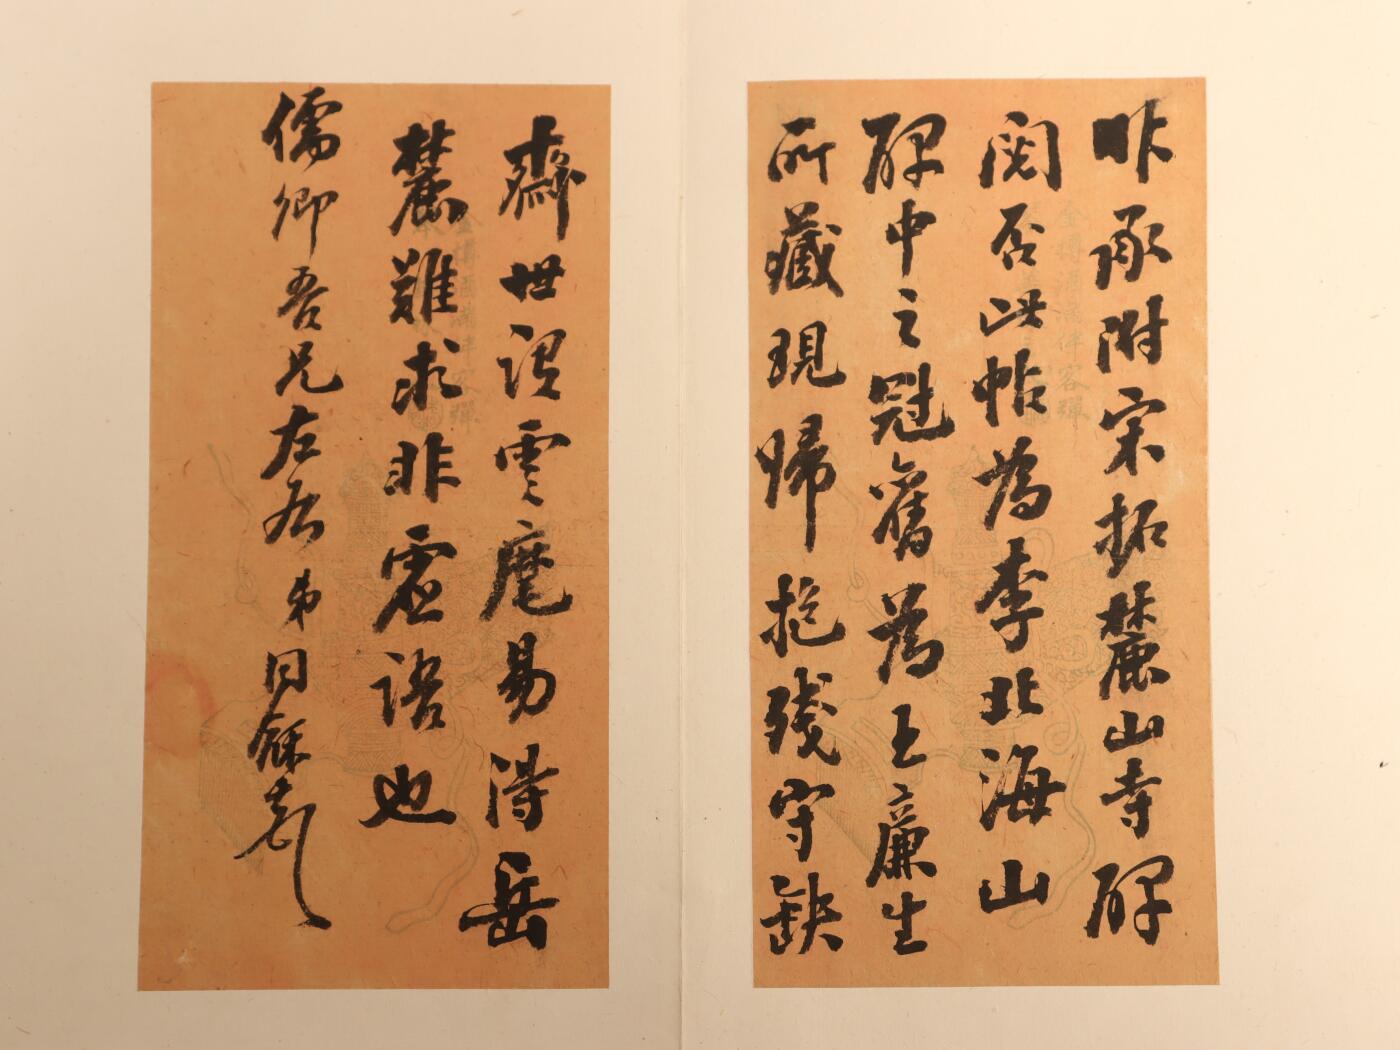 昨承附宋拓麓山寺碑
阅否此帖為李北海山
碑中之冠舊為王廉生
所藏現歸抱殘守缺
齋世謂雲麾易得岳
麓難求非虛語也
儒卿吾兄左右 弟同龢